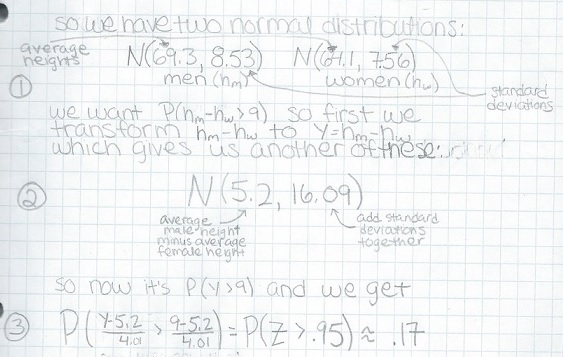 so we have two normal distributions:
average heights
N(69.3, 8.53) N(64.1, 7.56)
men (hm) women (hw)
standard deviations
①
we want P(hm-hw>9) so first we
transform hm-hw to Y=hm-hw
which gives us another of these:
②
N(5.2, 16.09)
average
male height
minus average
female height
add standard
deviations
together
so now it's P(Y>9) and we get
③ P(Y-5.2/4.01 > 9-5.2/4.01) = P(Z>.95) ≈ .17